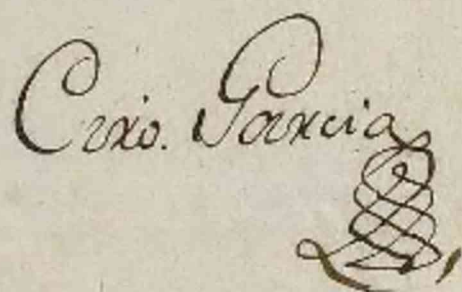 Ciro. Garcia